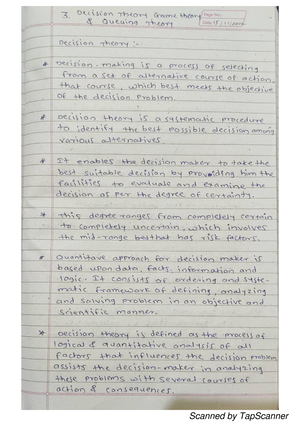 3. Decision Theory Game theory
& Queuing Theory
Page No.
Date
Decision Theory :-
* Decision-making is a process of selecting
from a set of alternative course of action,
that course, which best meets the objective
of the decision problem.
* Decision theory is a systematic procedure
to identify the best possible decision among
various alternatives.
* It enables the decision maker to take the
best suitable decision by providing him the
facilities to evaluate and examine the
decision as per the degree of certainty.
* This degree ranges from completely certain
to completely uncertain, which involves
the mid-range that has risk factors.
* Quantitave approach for decision maker is
based upon data, facts, information and
logic. It consists of ordering and syste-
matic framework of defining, analyzing
and solving problem in an objective and
scientific manner.
* Decision theory is defined as the process of
logical & quantitative analysis of all
factors that influences the decision problem
assists the decision-maker in analyzing
these problems with several courses of
action & consequences.
Scanned by TapScanner